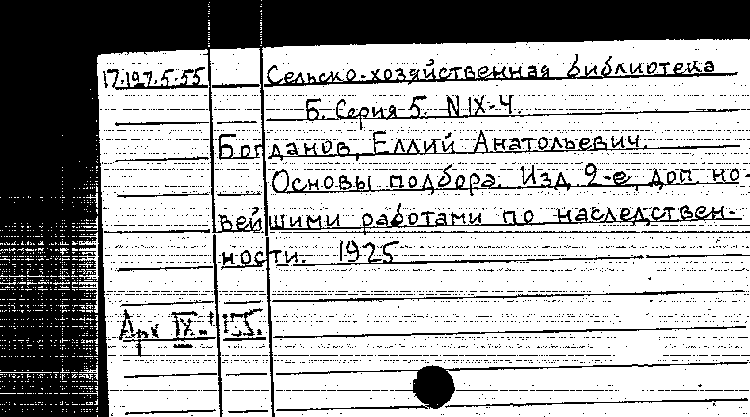 17.197.5.55 Сельско-хозяйственная библиотека
Б. Серия 5. N IX-4.
Богданов, Еллий Анатольевич.
Основы подбора. Изд. 2-е, доп. но-
вейшими работами по наследствен-
ности. 1925
Арх IX